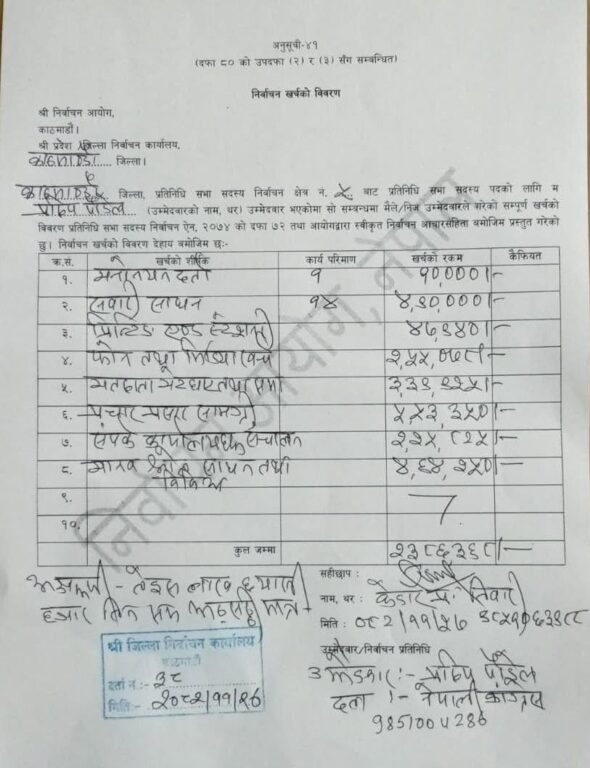 अनुसूची-४१
(दफा ८० को उपदफा (२) र (३) सँग सम्बन्धित)
निर्वाचन खर्चको विवरण
श्री निर्वाचन आयोग,
काठमाडौं।
श्री प्रदेश/जिल्ला निर्वाचन कार्यालय,
काठमाडौं..... जिल्ला।
काठमाडौं जिल्ला, प्रतिनिधि सभा सदस्य निर्वाचन क्षेत्र नं. ५ बाट प्रतिनिधि सभा सदस्य पदको लागि म
प्रदिप पौडेल (उम्मेदवारको नाम, थर) उम्मेदवार भएकोमा सो सम्बन्धमा मैले/निज उम्मेदवारले गरेको सम्पूर्ण खर्चको
विवरण प्रतिनिधि सभा सदस्य निर्वाचन ऐन, २०७४ को दफा ७२ तथा आयोगद्वारा स्वीकृत निर्वाचन आचारसंहिता बमोजिम प्रस्तुत गरेको
छु। निर्वाचन खर्चको विवरण देहाय बमोजिम छ:-
क्र.सं. खर्चको शीर्षक कार्य परिमाण खर्चको रकम कैफियत
१. मनोनयन दर्ता १ १०,०००/-
२. सवारी साधन १४ ४,१०,०००/-
३. प्रिन्टिङ एण्ड स्टेशनरी
४. फोन तथा मिडिया खर्च २,५५,०७८/-
५. मतदाता
६. प्रचार प्रसार सामग्री ५,५३,३५०/-
७. संपर्क कार्यालय संचालन २,२५,८२५/-
८. मानव श्रोत साधन तथा
विविध ४,६४,२५०/-
९.
१०.
कुल जम्मा २३८६३६८/-
अक्षरुपी - तेइस लाख छयासी
हजार तिन सय अठसठ्ठी मात्र
सहीछाप :
नाम, थर : केदार प्र. तिवारी
मिति : ०८२/११/२६
उम्मेदवार/निर्वाचन प्रतिनिधि
उम्मेदवार :- प्रदिप पौडेल
दल :- नेपाली कांग्रेस
9851004286
श्री जिल्ला निर्वाचन कार्यालय
काठमाडौं
दर्ता नं :- ३८
मिति :- २०८२/११/२६
निर्वाचन आयोग, नेपाल